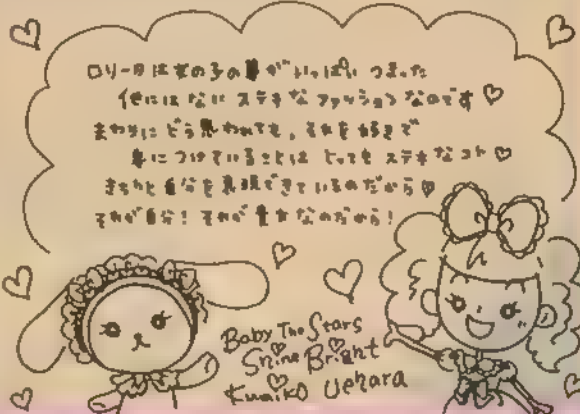 ロリータは女の子の夢がいっぱい つまった
他にはない ステキなファッションなのです♡
まわりにどう思われても、それを好きで
身につけていることは とっても ステキなコト♡
きちんと自分を表現できているのだから♡
それが自分！それが なのだから！
Baby The Stars
Shine Bright
Kumiko Uehara